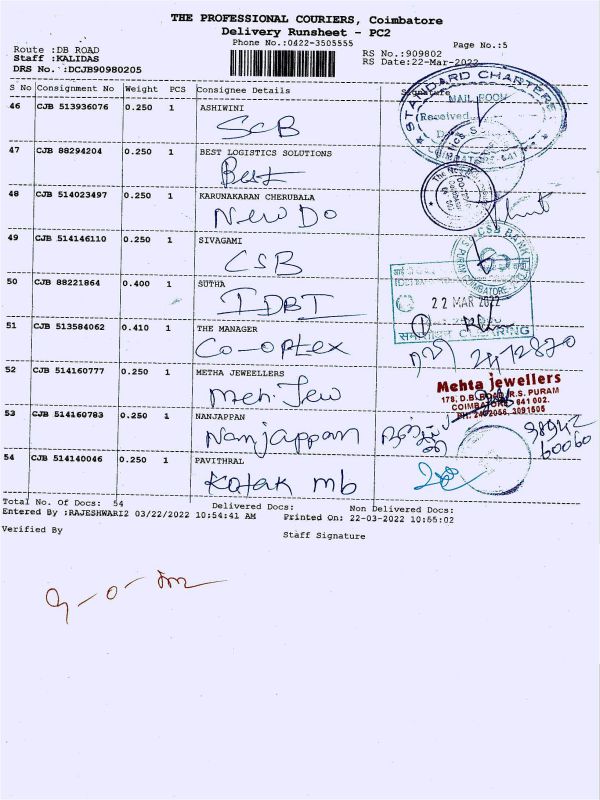 THE PROFESSIONAL COURIERS, Coimbatore
Delivery Runsheet - PC2
Phone No.:0422-3505555
Page No.:5
Route :DB ROAD
RS No.:909802
Staff :KALIDAS
RS Date:22-Mar-2022
DRS No. :DCJB90980205
S No Consignment No Weight PCS Consignee Details Signature
46 CJB 513936076 0.250 1 ASHIWINI
SCB
STANDARD CHARTERED
MAIL ROOM
Received
COIMBATORE - 641
47 CJB 88294204 0.250 1 BEST LOGISTICS SOLUTIONS
Best
48 CJB 514023497 0.250 1 KARUNAKARAN CHERUBALA
New Do
49 CJB 514146110 0.250 1 SIVAGAMI
CSB
CSB BANK
COIMBATORE
50 CJB 88221864 0.400 1 SUTHA
IDBI
22 MAR 2022
51 CJB 513584062 0.410 1 THE MANAGER
Co-optex
CLEARING
52 CJB 514160777 0.250 1 METHA JEWELLERS
Meh. Jew
Mehta jewellers
178, D.B. ROAD, R.S. PURAM
COIMBATORE 641 002.
PH: 2402056, 3091505
53 CJB 514160783 0.250 1 NANJAPPAN
Nanjappan
98942
60060
54 CJB 514140046 0.250 1 PAVITHRAL
Kotak mb
Total No. Of Docs: 54 Delivered Docs: Non Delivered Docs:
Entered By :RAJESHWARI2 03/22/2022 10:54:41 AM Printed On: 22-03-2022 10:55:02
Verified By
Staff Signature